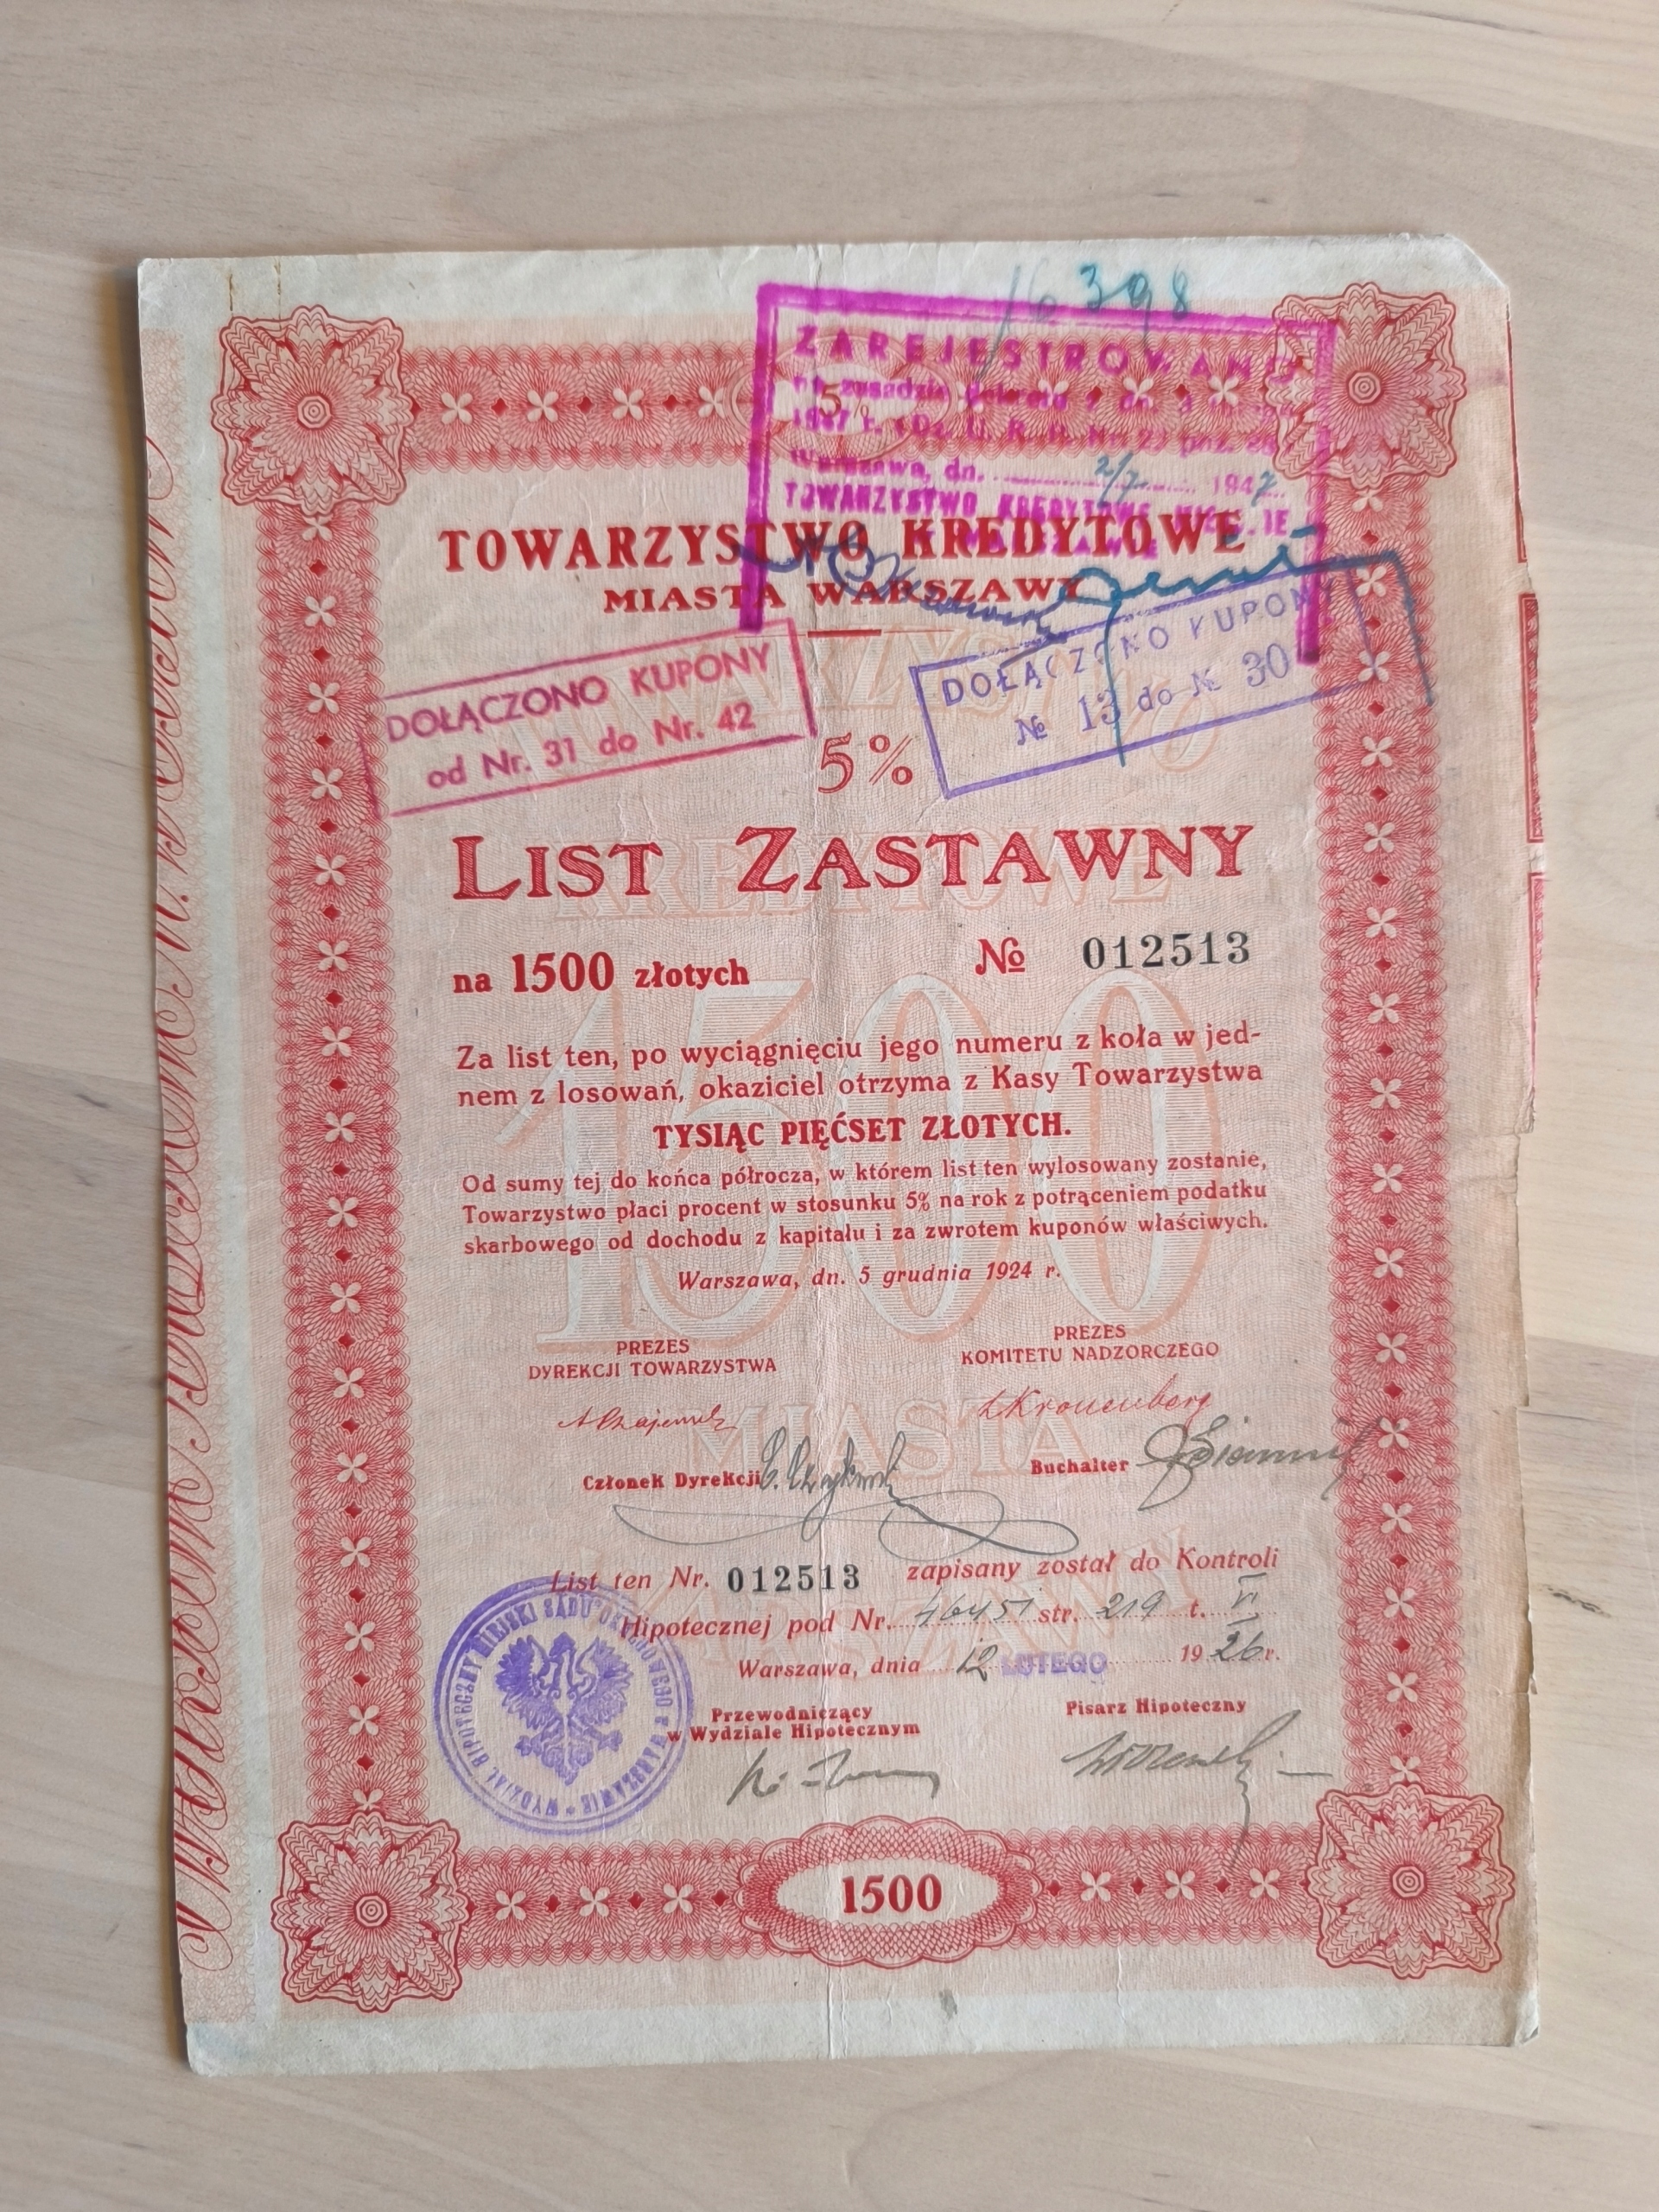 16398
ZAREJESTROWANO
na zasadzie dekretu z dn. 3
1947 r. (Dz. U. R. P. Nr 22 poz. 88
Warszawa, dn. 2/7 1947
TOWARZYSTWO KREDYTOWE MIEJSKIE
5%
TOWARZYSTWO KREDYTOWE
MIASTA WARSZAWY
DOŁĄCZONO KUPONY
od Nr. 31 do Nr. 42
DOŁĄCZONO KUPONY
№ 13 do № 30
5%
LIST ZASTAWNY
na 1500 złotych
№ 012513
Za list ten, po wyciągnięciu jego numeru z koła w jed-
nem z losowań, okaziciel otrzyma z Kasy Towarzystwa
TYSIĄC PIĘĆSET ZŁOTYCH.
Od sumy tej do końca półrocza, w którem list ten wylosowany zostanie,
Towarzystwo płaci procent w stosunku 5% na rok z potrąceniem podatku
skarbowego od dochodu z kapitału i za zwrotem kuponów właściwych.
Warszawa, dn. 5 grudnia 1924 r.
PREZES
DYREKCJI TOWARZYSTWA
PREZES
KOMITETU NADZORCZEGO
LKronenberg
Członek Dyrekcji
Buchalter
List ten Nr. 012513 zapisany został do Kontroli
Hipotecznej pod Nr. 46451 str. 219 t. VI
Warszawa, dnia 12 LUTEGO 1926 r.
Przewodniczący
w Wydziale Hipotecznym
Pisarz Hipoteczny
WYDZIAŁ HIPOTECZNY MIEJSKI SĄDU OKRĘGOWEGO W WARSZAWIE
1500
TOWARZYSTWO
KREDYTOWE
1500
MIASTA
WARSZAWY